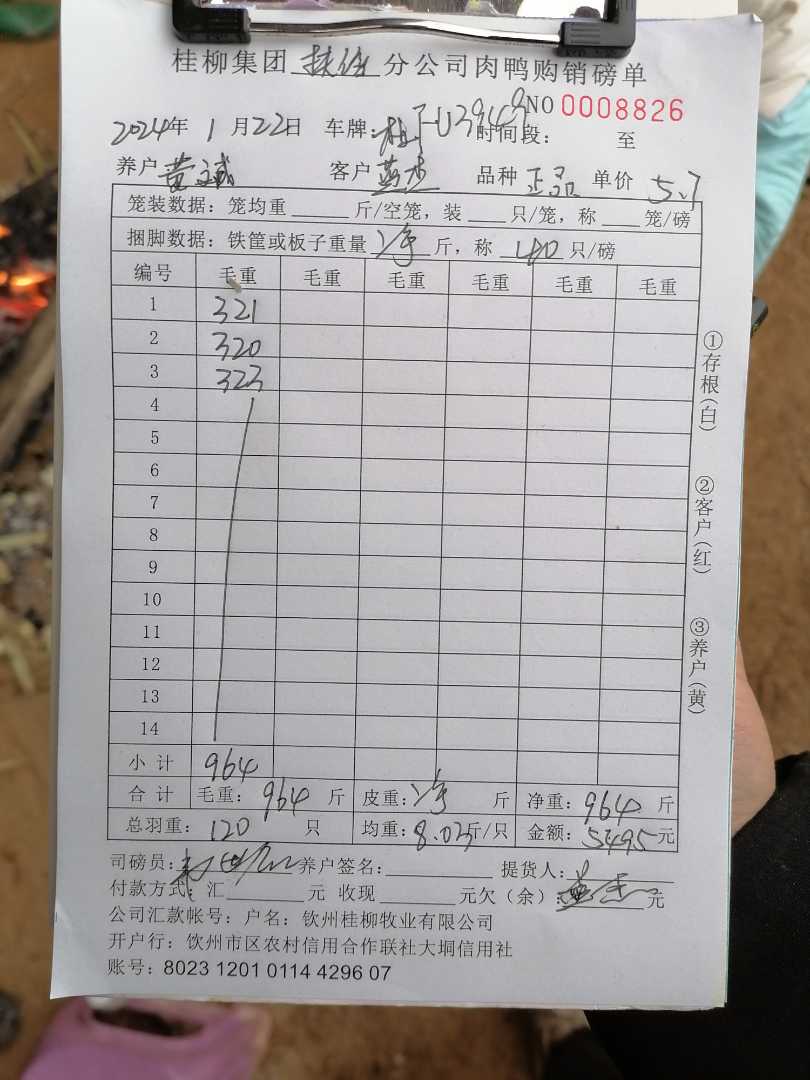 桂柳集团 分公司肉鸭购销磅单
NO 0008826
2024年 1月22日 车牌: 时间段: 至
养户 黄 客户 品种 正品 单价 5.7
笼装数据: 笼均重 斤/空笼, 装 只/笼, 称 笼/磅
捆脚数据: 铁筐或板子重量 净 斤, 称 40 只/磅
编号 毛重 毛重 毛重 毛重 毛重 毛重
1 321
2 320
3 323
4
5
6
7
8
9
10
11
12
13
14
小计 964
合计 毛重: 964 斤 皮重: 净 斤 净重: 964 斤
总羽重: 120 只 均重: 8.03斤/只 金额: 5495元
司磅员: 养户签名: 提货人:
付款方式: 汇 元 收现 元欠(余): 元
公司汇款帐号: 户名: 钦州桂柳牧业有限公司
开户行: 钦州市区农村信用合作联社大垌信用社
账号: 8023 1201 0114 4296 07
①存根(白)
②客户(红)
③养户(黄)